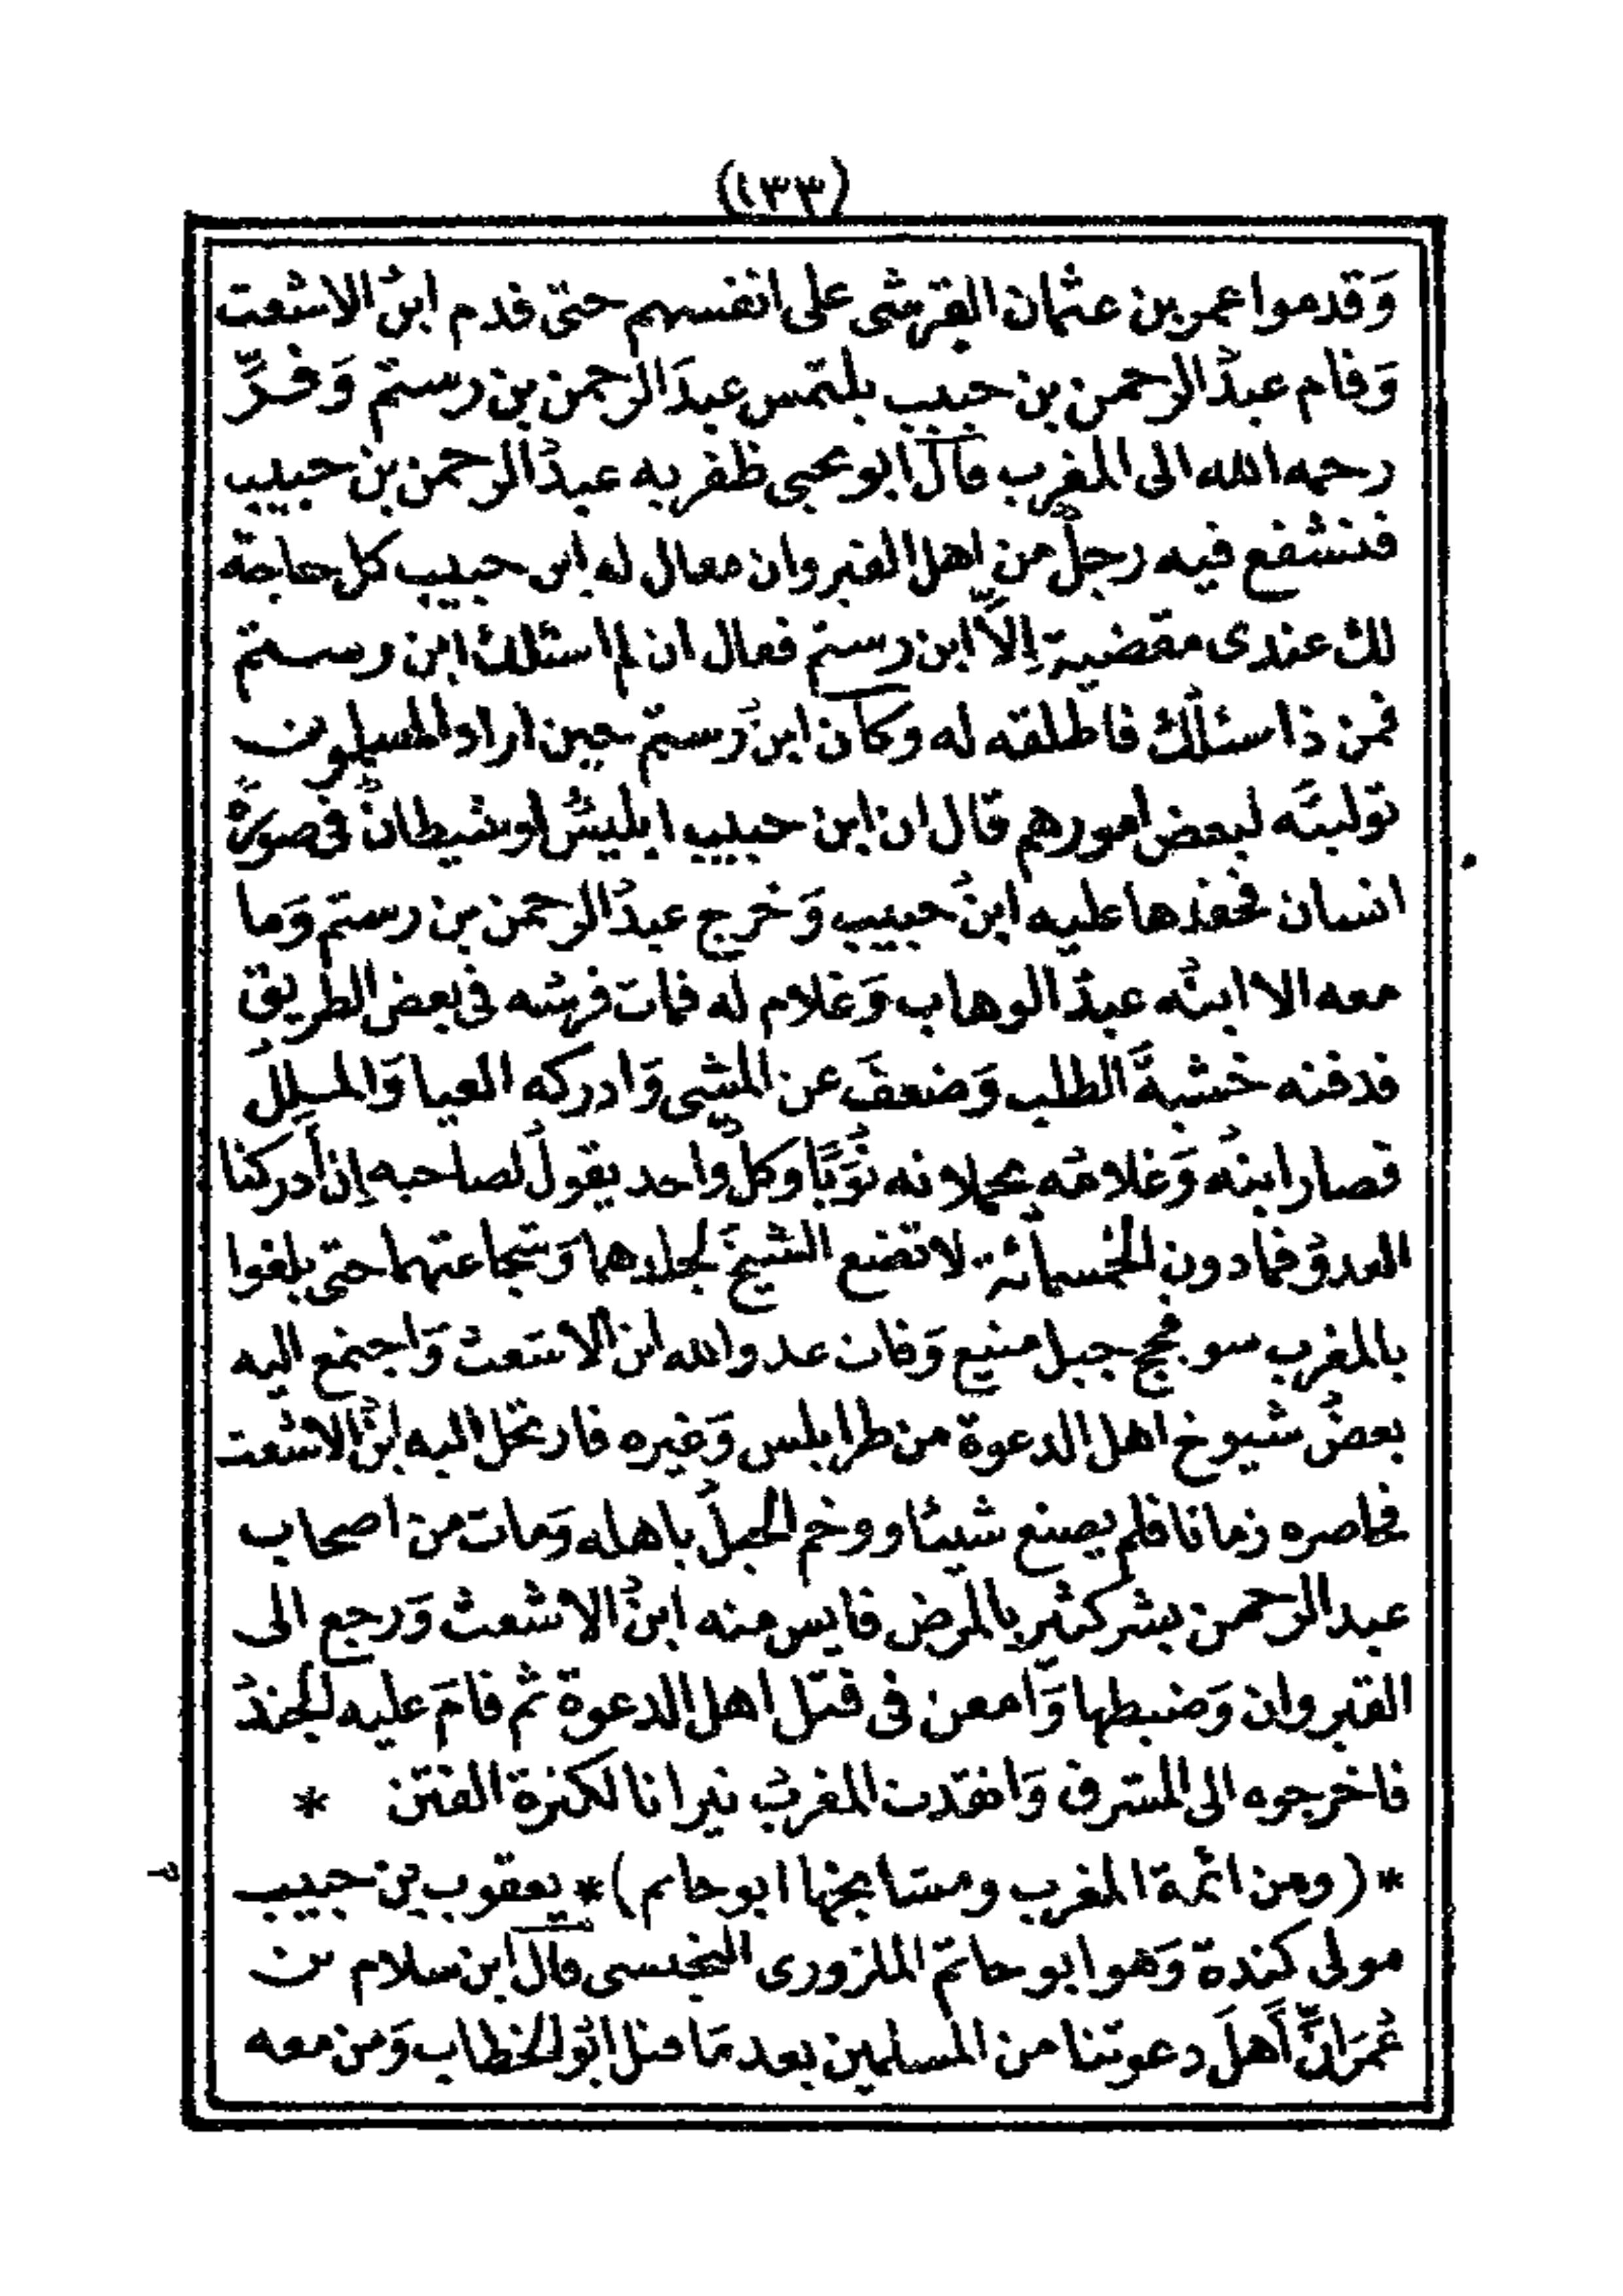 (١٣٣)
وَقدموا عمر بن عثمان القرشى على انفسهم حتى قدم ابنُ الاشعث
وَقام عبدُ الرحمن بن حبيب يلتمس عبدَ الرحمن بن رستم وَفرَّ
رحمه الله الى المغرب قال ابو يحيى ظفر به عبدُ الرحمن بن حبيب
فتشفع فيه رجلٌ من اهل القيروان فقال له ابن حبيب كل حاجة
لك عندى مقضية إلاَّ ابن رستم فقال ان لم اسئلك ابن رستم
فمن ذا اسئلك فاطلقه له وكان ابنُ رستم حين اراد المسلمون
توليتَه لبعض امورهم قال ان ابن حبيب ابليسٌ او شيطانٌ فى صورةِ
انسان فحقدها عليه ابنُ حبيب وَخرج عبدُ الرحمن بن رستم وَما
معه الا ابنُه عبدُ الوهاب وَغلام له فمات فرسُه فى بعض الطريق
فدفنه خشيةَ الطلب وَضعفَ عن المشى وَادركه العيا وَالمللُ
فصار ابنُه وَغلامُه يحملانه نُوَبًا وكلُّ واحد يقولُ لصاحبه إن أدركنا
العدوُ فما دون الخمسمائة لا تضع الشيخَ لجلدهما وَشجاعتهما حتى بلغوا
بالمغرب سوفجج جبل منيع وَفات عدو الله ابن الاشعث وَاجتمع اليه
بعضُ شيوخ اهل الدعوة من طرابلس وَغيره فارتحل اليه ابنُ الاشعث
فحاصره زمانا فلم يصنع شيئا ووخم الجبلُ باهله وَمات من اصحاب
عبد الرحمن بشر كثير بالمرض فايس منه ابنُ الاشعث وَرجع الى
القيروان وَضبطها وَامعن فى قتل اهل الدعوة ثم قامَ عليه الجندُ
فاخرجوه الى المشرق وَاتقدت المغربُ نيرانا لكثرة الفتن *
* (ومن ائمة المغرب ومشايخها ابو حاتم) * يعقوب بن حبيب
مولى كندة وَهو ابو حاتم الملزورى النجيسى قال ابن سلام بن
عُمَرَ انَّ أهلَ دعوتنا من المسلمين بعد مَا قتل ابُو الخطاب وَمن معه